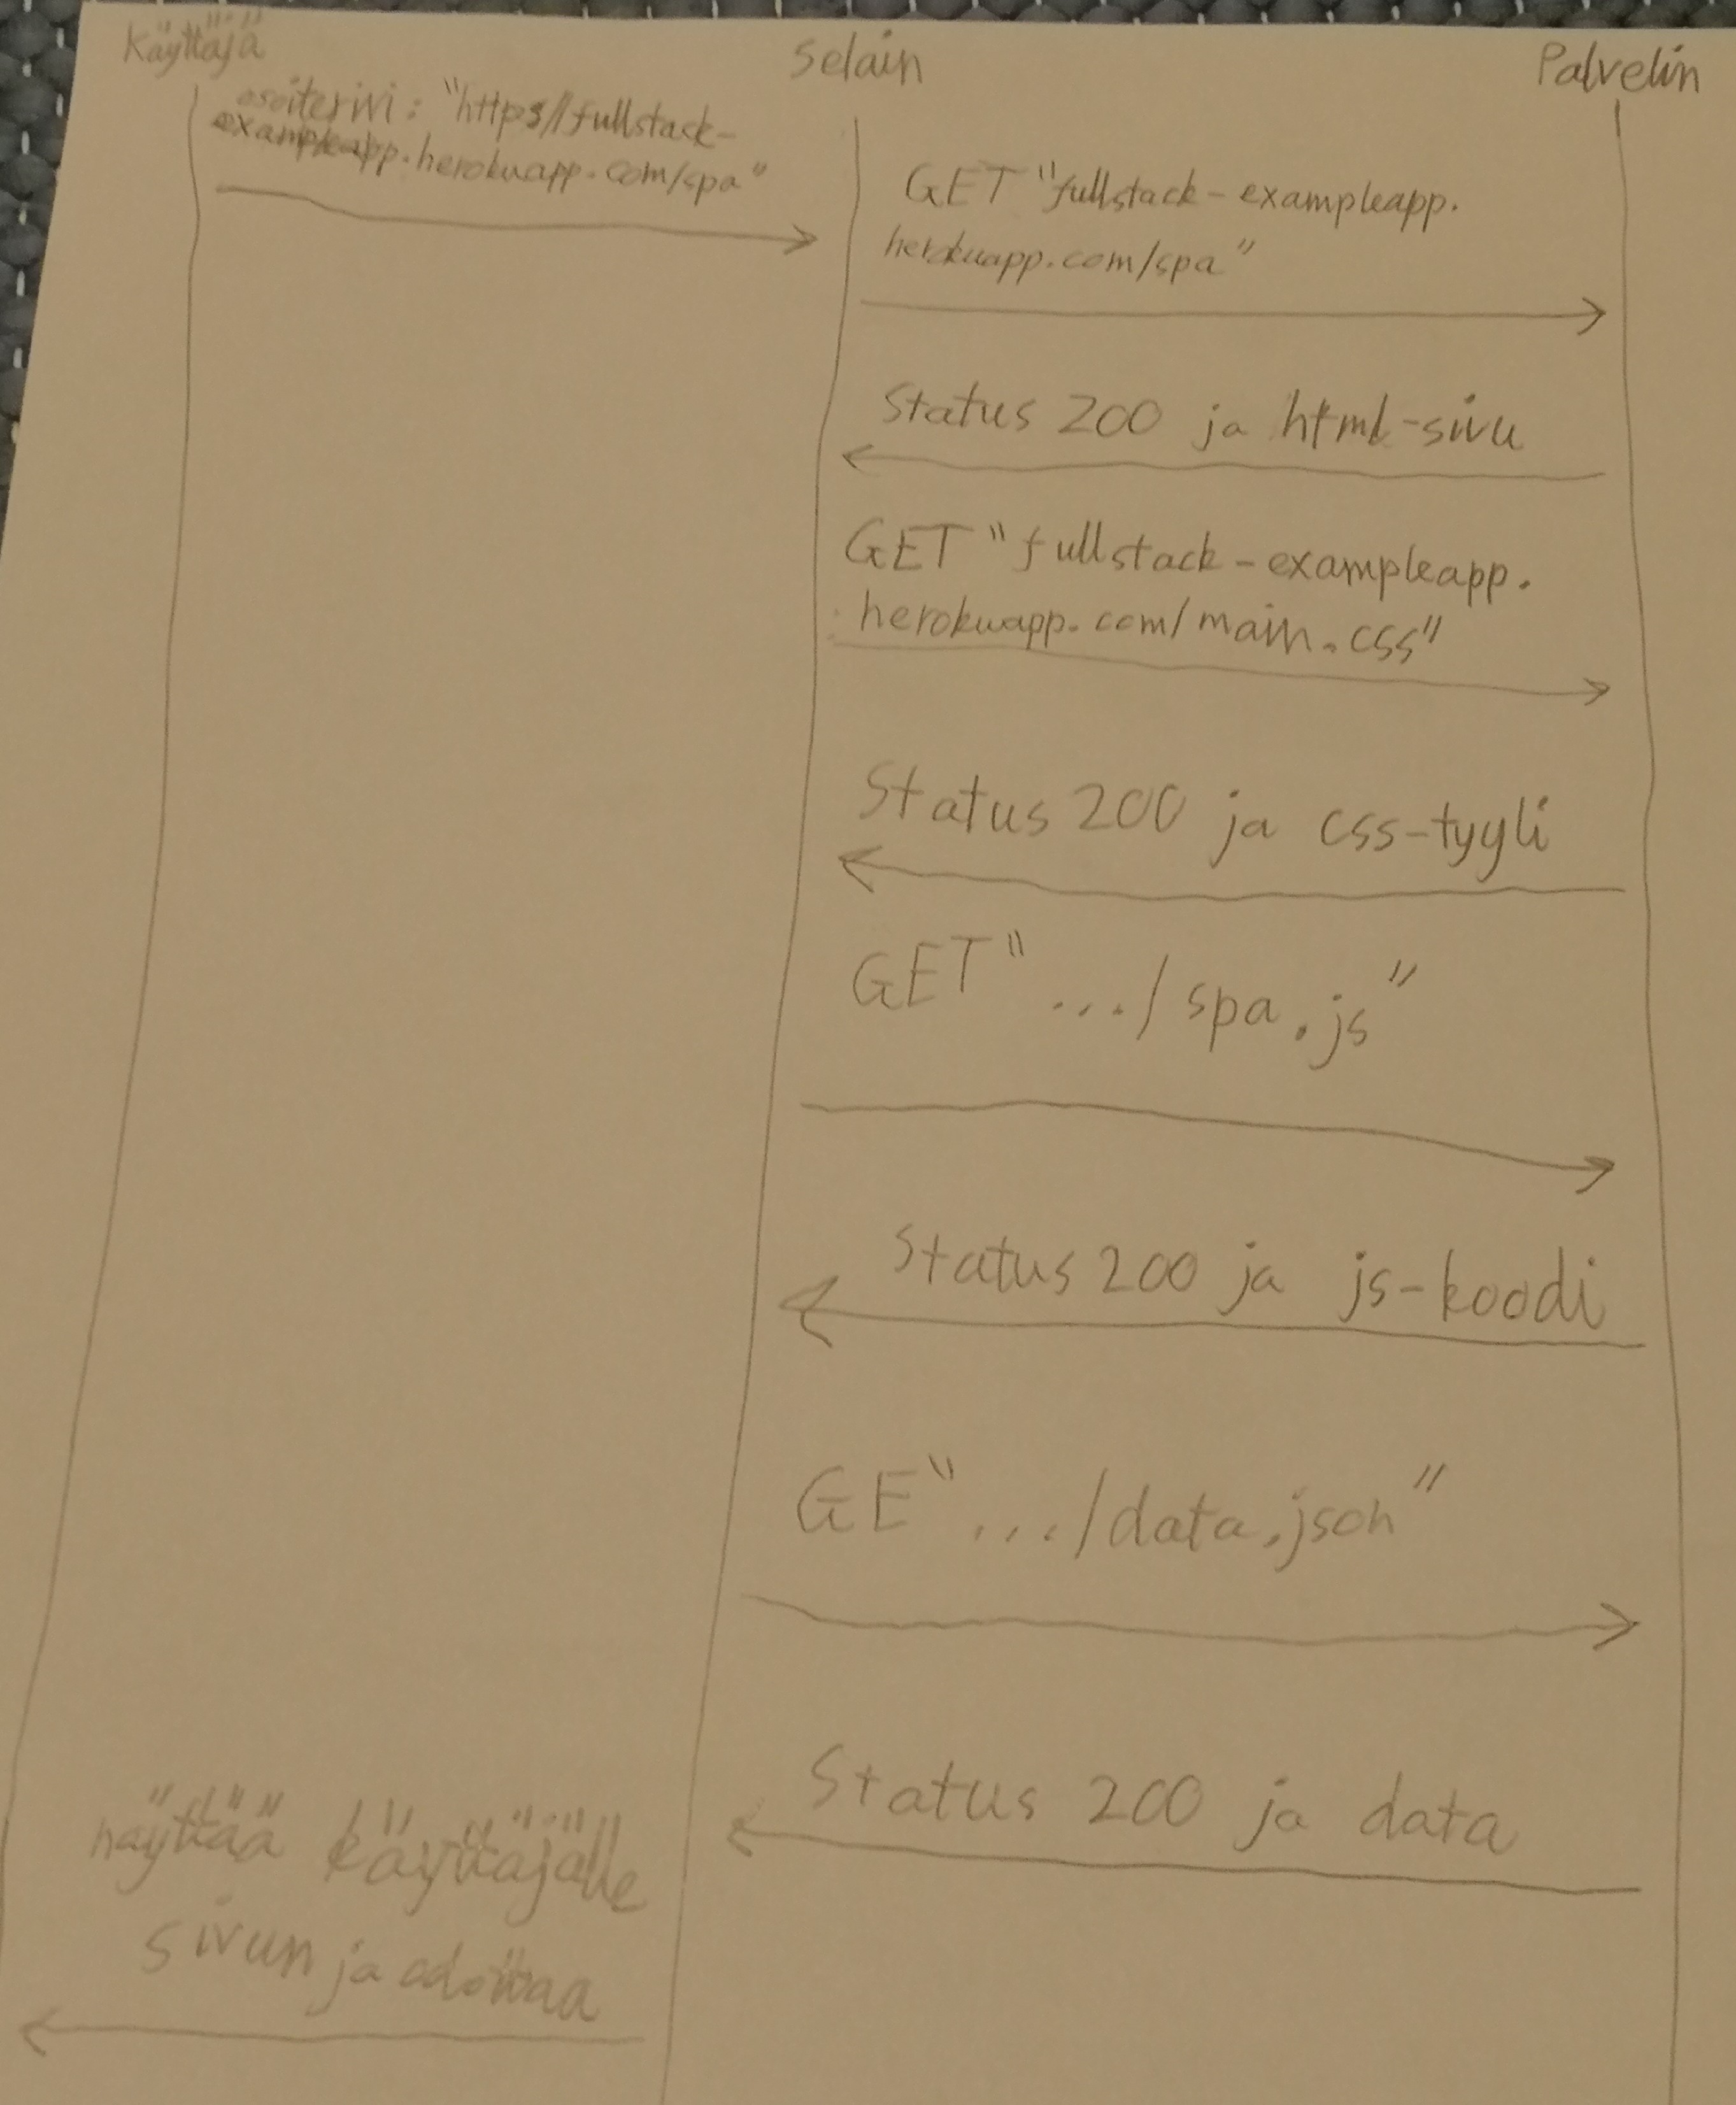 Käyttäjä
Selain
Palvelin
osoiterivi: "https//fullstack-
exampleapp.herokuapp.com/spa"
GET "fullstack-exampleapp.
herokuapp.com/spa"
Status 200 ja html-sivu
GET "fullstack-exampleapp.
herokuapp.com/main.css"
Status 200 ja css-tyyli
GET ".../spa.js"
Status 200 ja js-koodi
GE ".../data.json"
Status 200 ja data
näyttää käyttäjälle
sivun ja odottaa